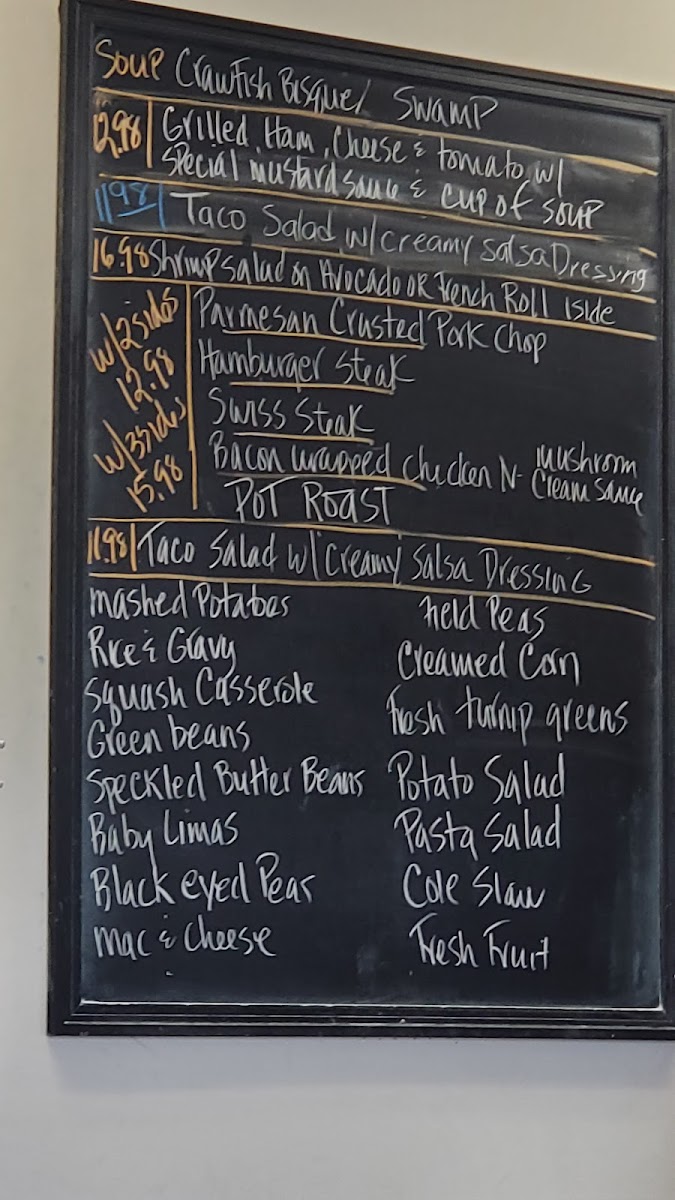 Soup Crawfish Bisque/ Swamp
12.98 Grilled, Ham, Cheese & tomato w/
special mustard sauce & cup of soup
11.98 Taco Salad w/ creamy salsa Dressing
16.98 Shrimp salad on Avocado or French Roll 1 side
w/ 2 sides
12.98
w/ 3 sides
15.98
Parmesan Crusted Pork Chop
Hamburger Steak
Swiss Steak
Bacon wrapped chicken N- mushroom
Cream sauce
POT ROAST
11.98 Taco Salad w/ creamy Salsa Dressing
mashed Potatoes
Rice & Gravy
Squash Casserole
Green beans
Speckled Butter Beans
Baby Limas
Black eyed Peas
mac & cheese
field Peas
Creamed Corn
fresh turnip greens
Potato Salad
Pasta Salad
Cole Slaw
Fresh Fruit